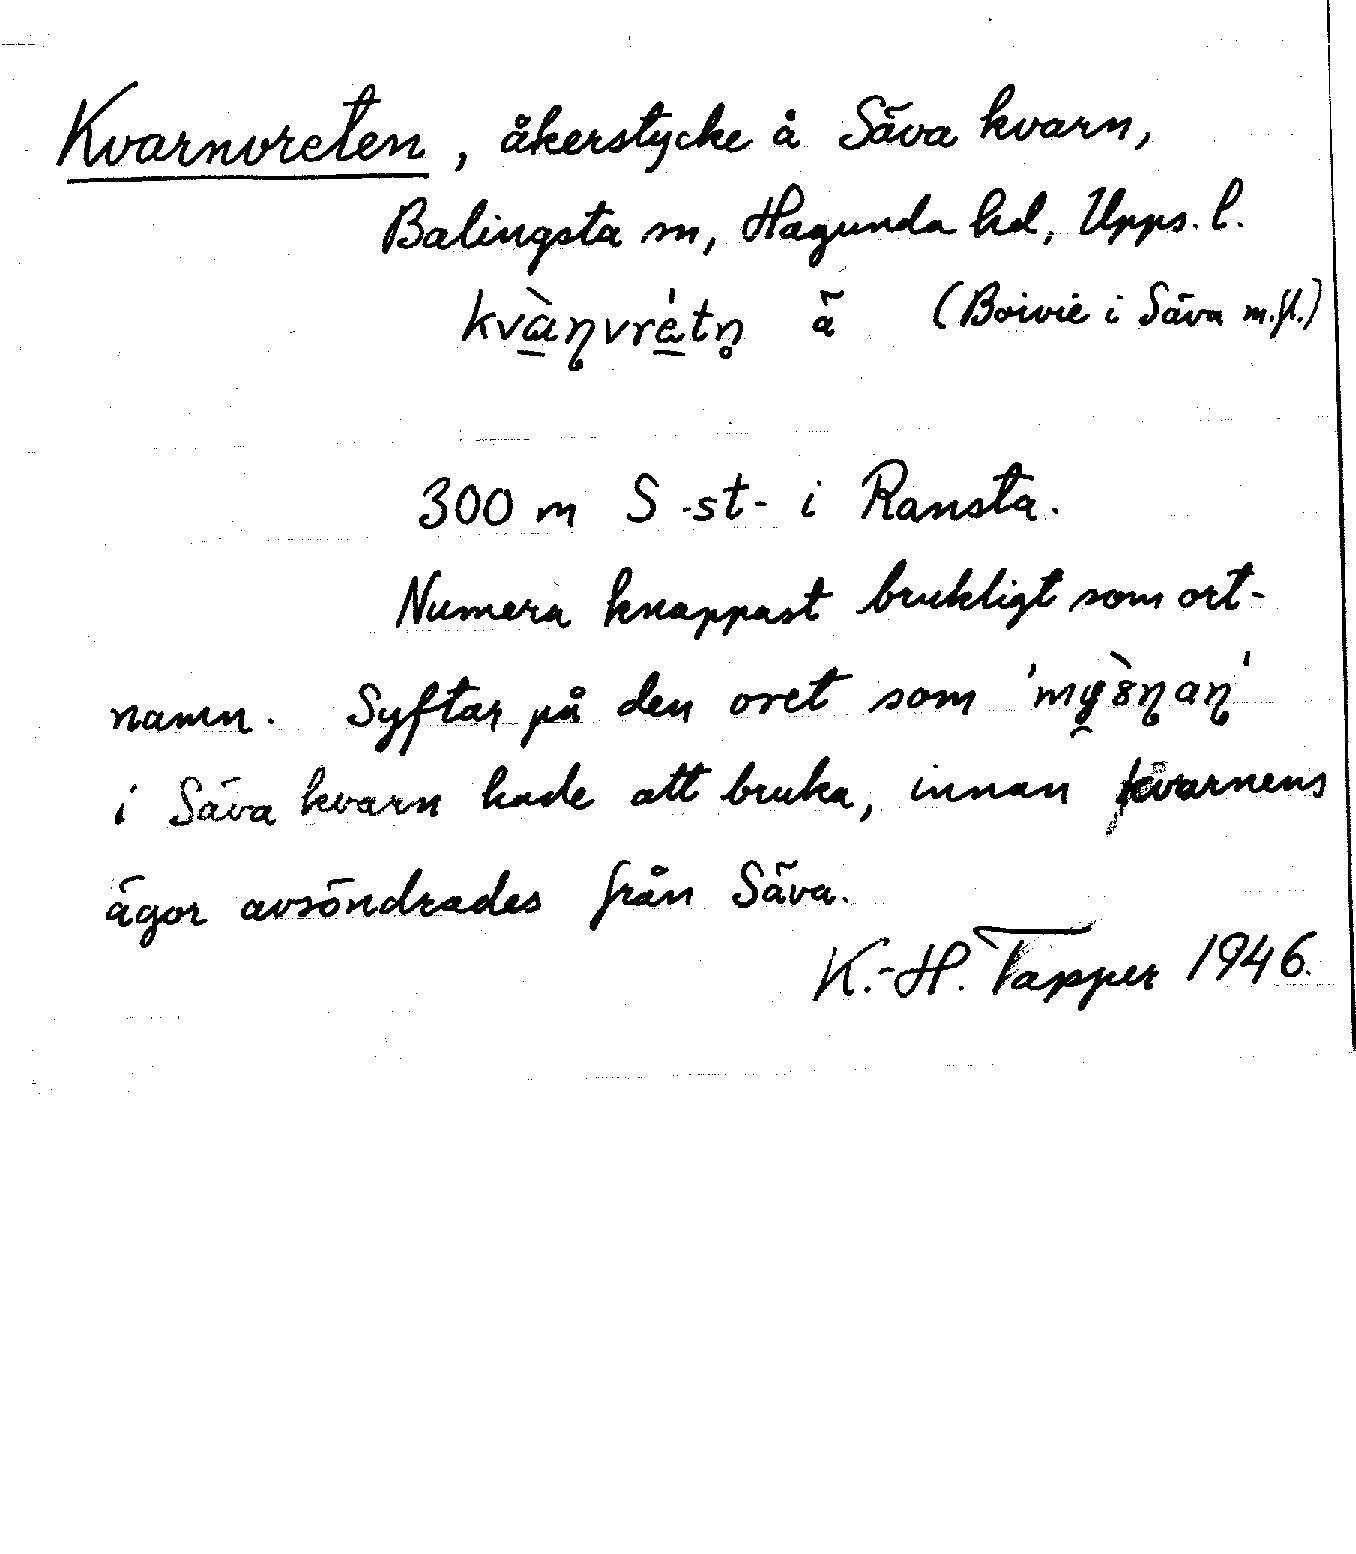 Kvarnvreten, åkerstycke å Säva kvarn,
Balingsta sn, Hagunda hd, Upps. l.
kvà̱ɳvrá̱tn̥ ä (Boivie i Säva m.fl.)
300 m S -st- i Ransta.
Numera knappast brukligt som ort-
namn. Syftar på den vret som
i Säva kvarn hade att bruka, innan kvarnens
ägor avsöndrades från Säva.
K.-H. Tapper 1946.